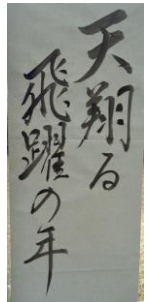 天翔る
飛躍の年